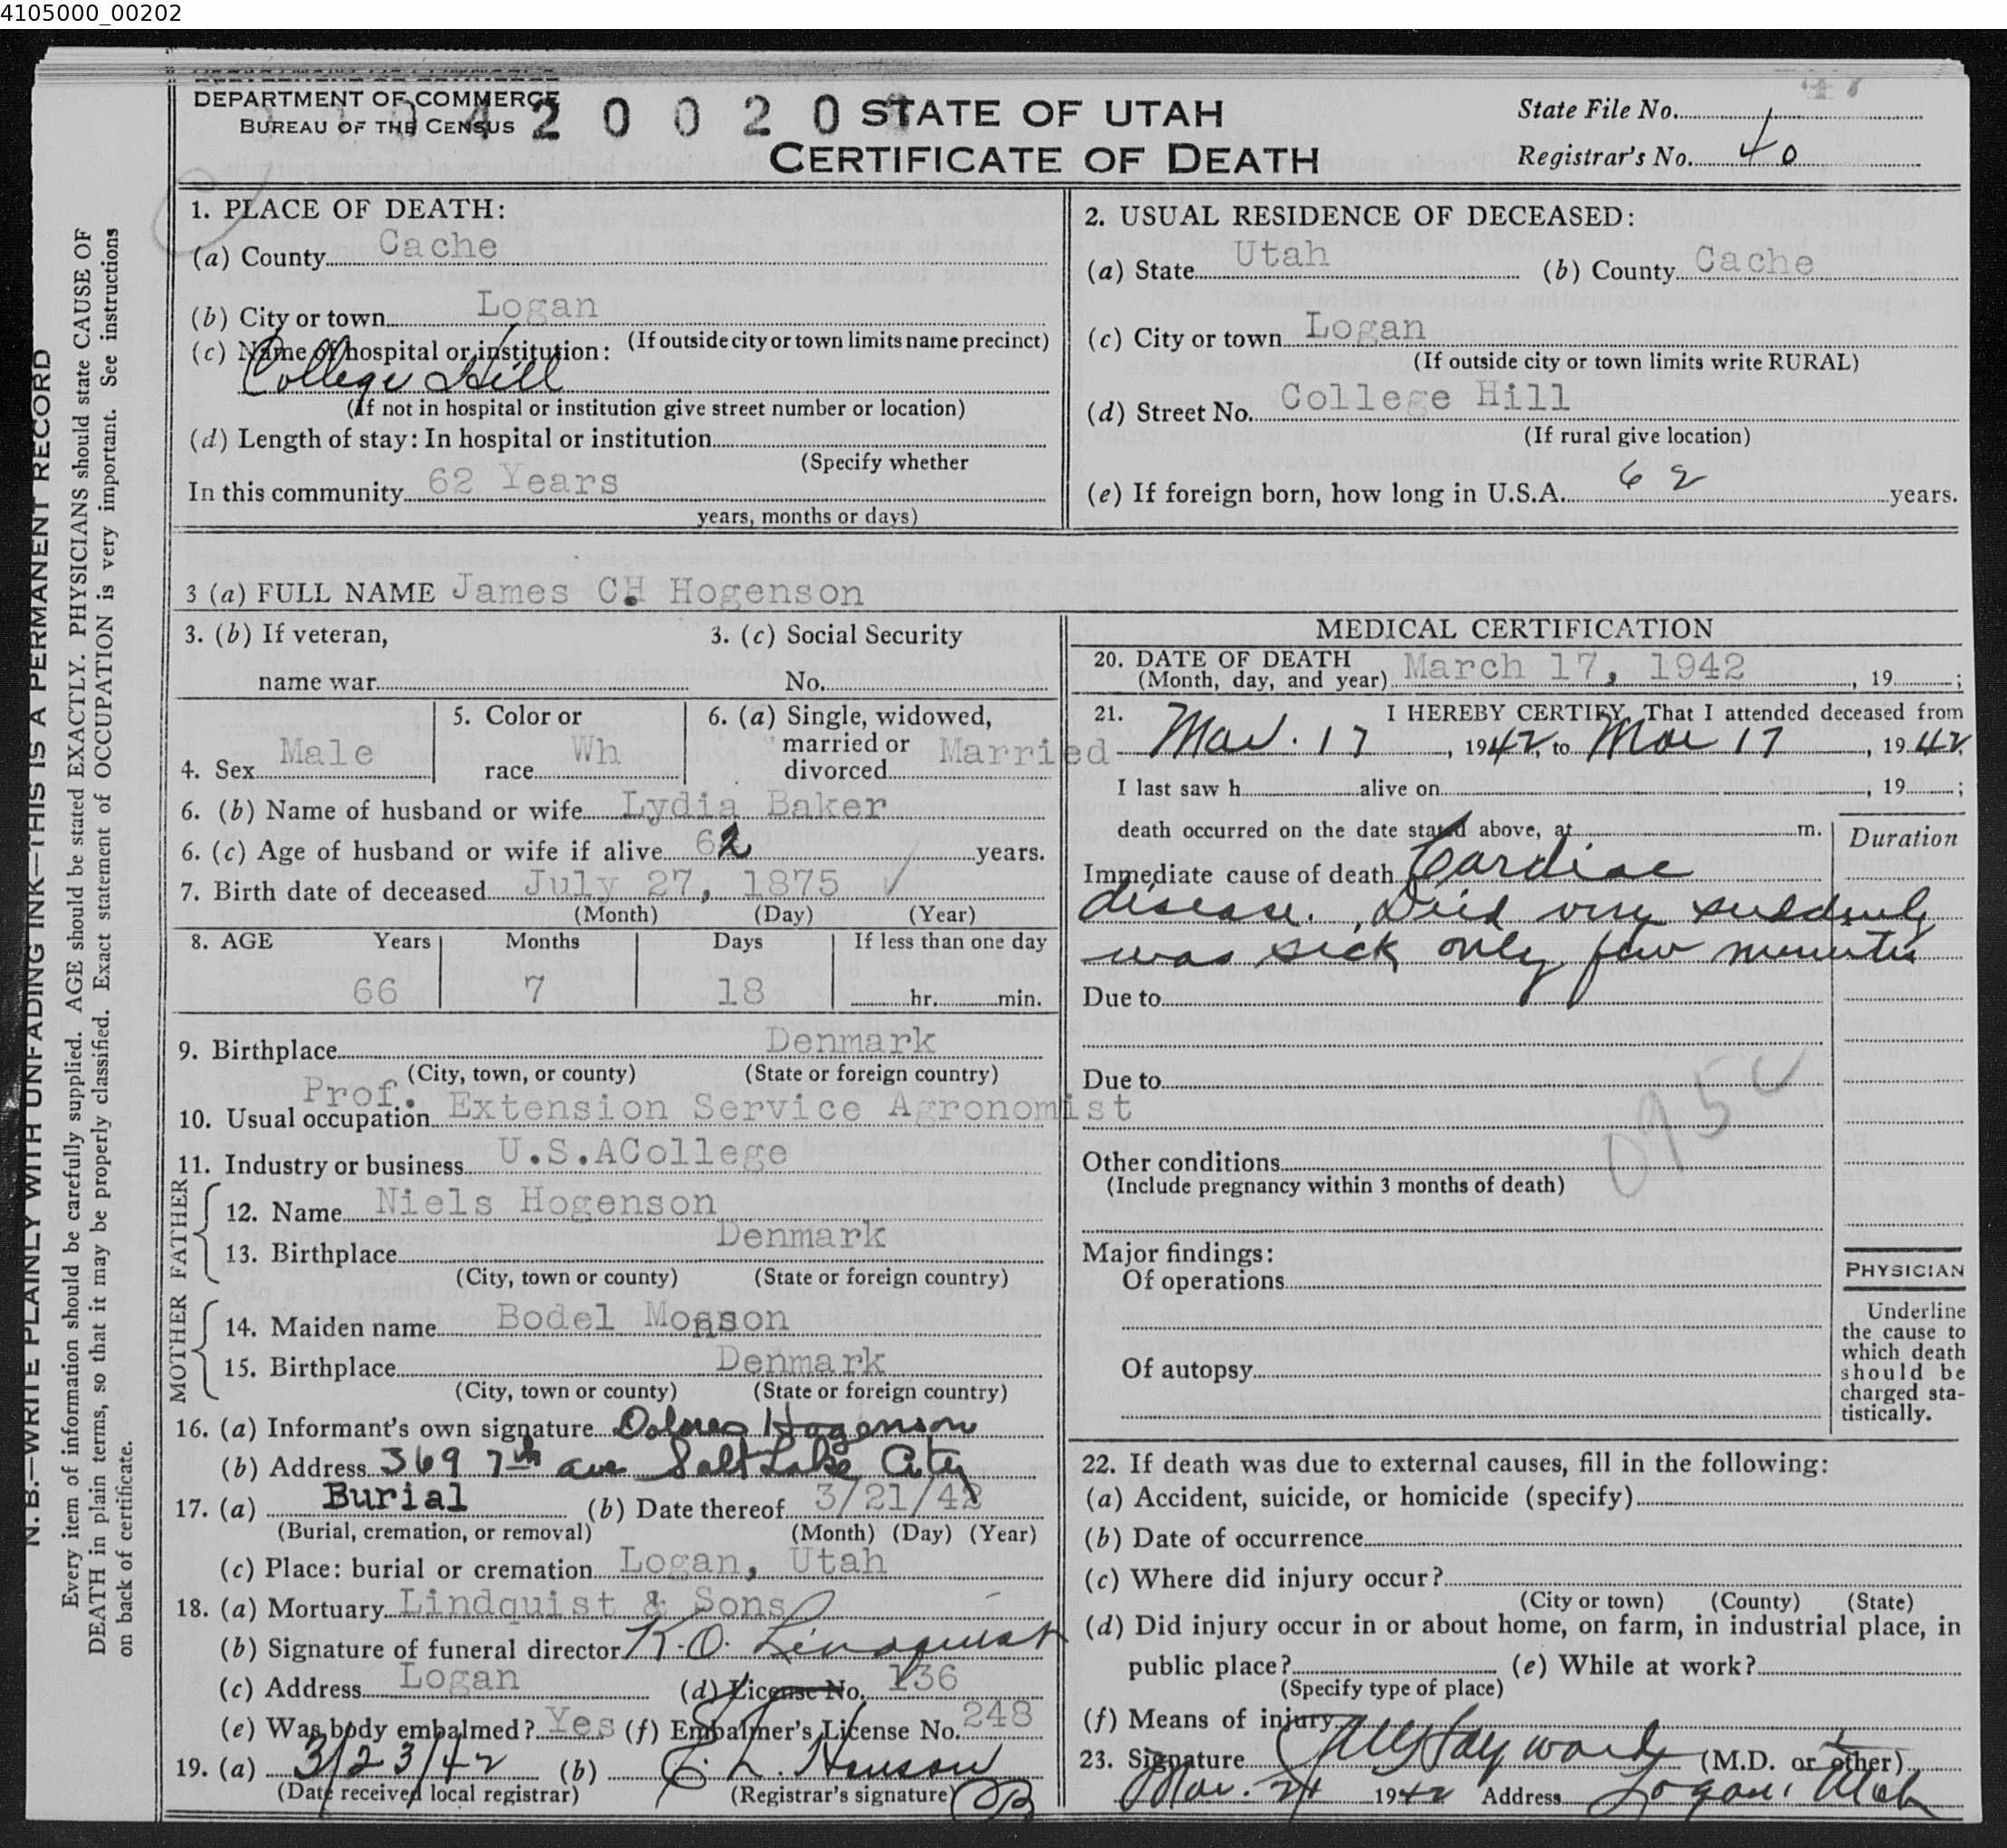 4105000_00202
DEPARTMENT OF COMMERCE
BUREAU OF THE CENSUS
4 2 0 0 2 0
STATE OF UTAH
CERTIFICATE OF DEATH
State File No.
Registrar's No. 40
N. B.—WRITE PLAINLY WITH UNFADING INK—THIS IS A PERMANENT RECORD
Every item of information should be carefully supplied. AGE should be stated EXACTLY. PHYSICIANS should state CAUSE OF
DEATH in plain terms, so that it may be properly classified. Exact statement of OCCUPATION is very important. See instructions
on back of certificate.
1. PLACE OF DEATH:
(a) County Cache
(b) City or town Logan
(If outside city or town limits name precinct)
(c) Name of hospital or institution:
College Hill
(If not in hospital or institution give street number or location)
(d) Length of stay: In hospital or institution
(Specify whether
In this community 62 Years
years, months or days)
2. USUAL RESIDENCE OF DECEASED:
(a) State Utah (b) County Cache
(c) City or town Logan
(If outside city or town limits write RURAL)
(d) Street No. College Hill
(If rural give location)
(e) If foreign born, how long in U.S.A. 62 years.
3 (a) FULL NAME James CH Hogenson
3. (b) If veteran,
name war
3. (c) Social Security
No.
4. Sex Male
5. Color or
race Wh
6. (a) Single, widowed,
married or
divorced Married
6. (b) Name of husband or wife Lydia Baker
6. (c) Age of husband or wife if alive 62 years.
7. Birth date of deceased July 27, 1875
(Month) (Day) (Year)
8. AGE Years Months Days If less than one day
66 7 18 hr. min.
9. Birthplace Denmark
(City, town, or county) (State or foreign country)
Prof.
10. Usual occupation Extension Service Agronomist
11. Industry or business U.S.ACollege
FATHER
12. Name Niels Hogenson
13. Birthplace Denmark
(City, town or county) (State or foreign country)
MOTHER
14. Maiden name Bodel Monson
15. Birthplace Denmark
(City, town or county) (State or foreign country)
16. (a) Informant's own signature Dolores Hogenson
(b) Address 369 7th ave Salt Lake City
17. (a) Burial (b) Date thereof 3/21/42
(Burial, cremation, or removal) (Month) (Day) (Year)
(c) Place: burial or cremation Logan, Utah
18. (a) Mortuary Lindquist & Sons
(b) Signature of funeral director K.O. Lindquist
(c) Address Logan (d) License No. 136
(e) Was body embalmed? Yes (f) Embalmer's License No. 248
19. (a) 3/23/42 (b) C. L. Hanson
(Date received local registrar) (Registrar's signature)
MEDICAL CERTIFICATION
20. DATE OF DEATH
(Month, day, and year) March 17, 1942, 19 ;
21. I HEREBY CERTIFY, That I attended deceased from
Mar. 17, 1942, to Mar 17, 1942,
I last saw h alive on , 19 ;
death occurred on the date stated above, at m.
Duration
Immediate cause of death Cardiac
disease. Died very suddenly
was sick only few minutes
Due to
Due to
095c
Other conditions
(Include pregnancy within 3 months of death)
Major findings:
Of operations
Of autopsy
PHYSICIAN
Underline
the cause to
which death
should be
charged sta-
tistically.
22. If death was due to external causes, fill in the following:
(a) Accident, suicide, or homicide (specify)
(b) Date of occurrence
(c) Where did injury occur?
(City or town) (County) (State)
(d) Did injury occur in or about home, on farm, in industrial place, in
public place? (e) While at work?
(Specify type of place)
(f) Means of injury
23. Signature Hayward (M.D. or other)
Mar. 21 1942 Address Logan, Utah